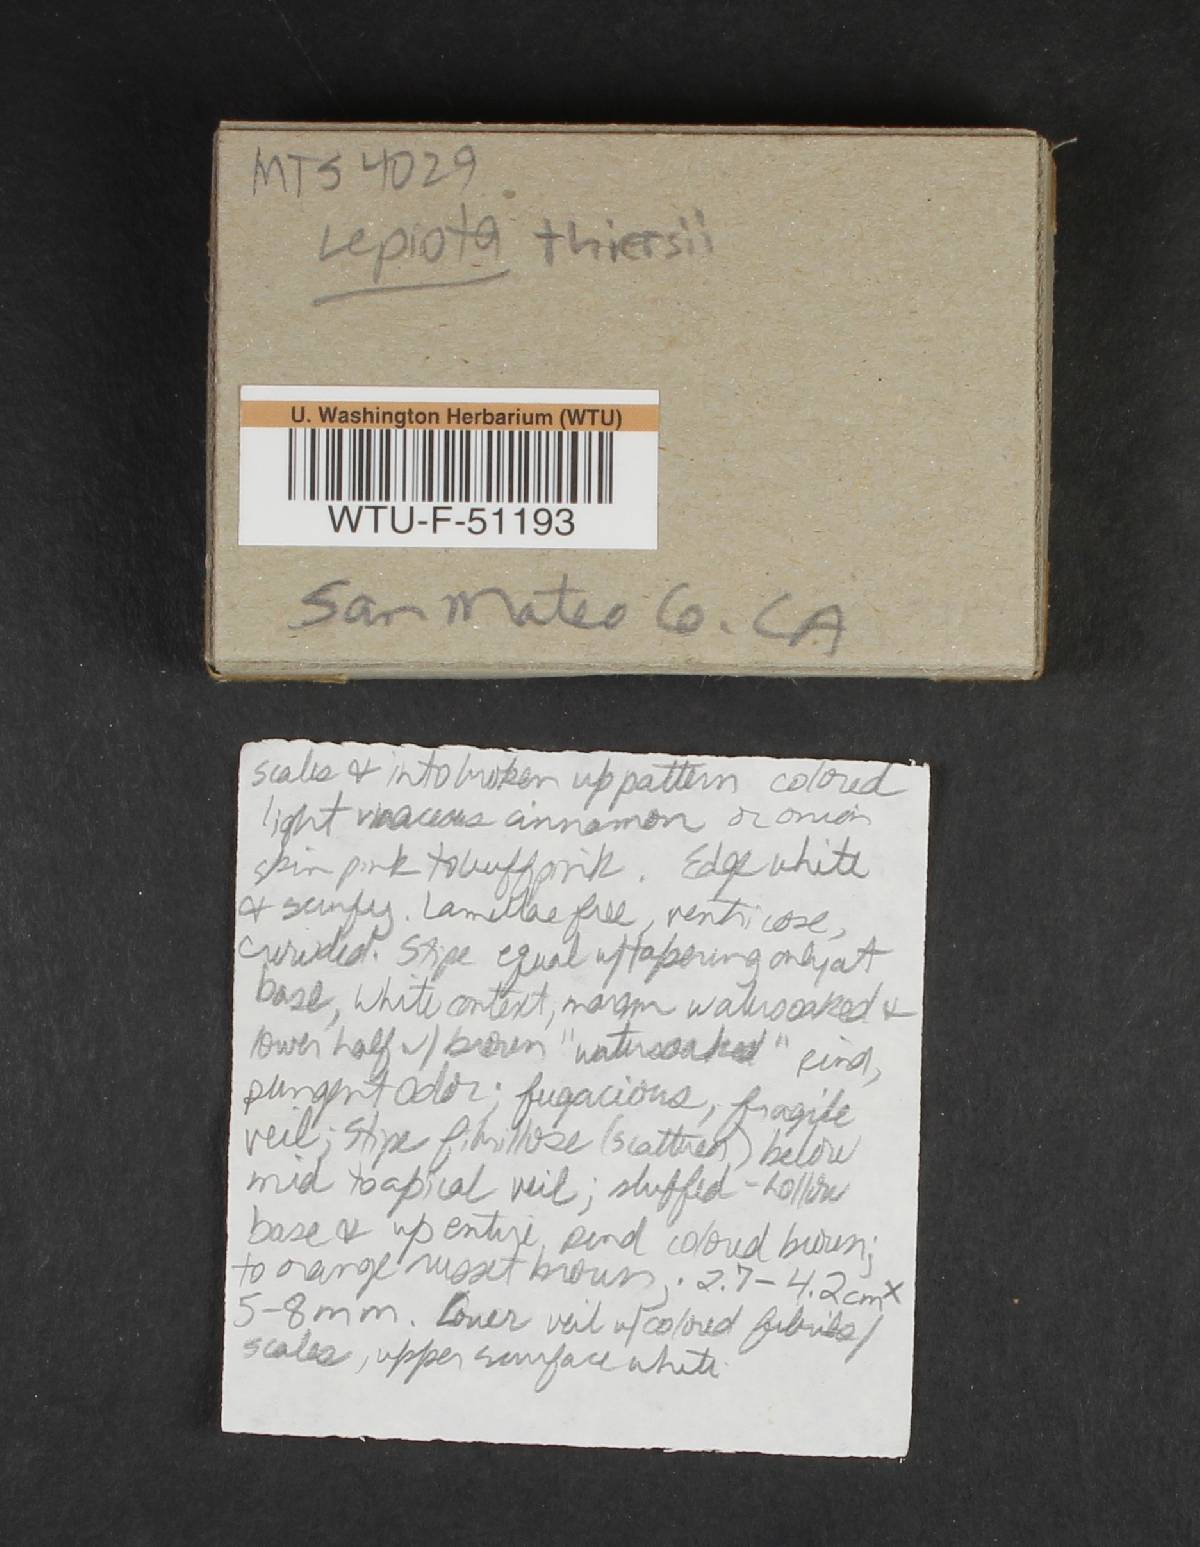 MTS 4029
Lepiota thiersii
U. Washington Herbarium (WTU)
WTU-F-51193
San Mateo Co. CA
scales & into broken up pattern colored
light vinaceous cinnamon or onion
skin pink to buff pink. Edge white
& scurfy. Lamellae free, ventricose,
crowded. Stipe equal w/tapering only at
base, white context, margin watersoaked &
lower half w/ brown "watersoaked" rind,
pungent odor; fugacious, fragile
veil; stipe fibrillose (scattered) below
mid to apical veil; stuffed-hollow
base & up entire rind colored brown;
to orange russet brown; 2.7-4.2cm x
5-8mm. Lower veil w/colored fibrils/
scales, upper surface white.